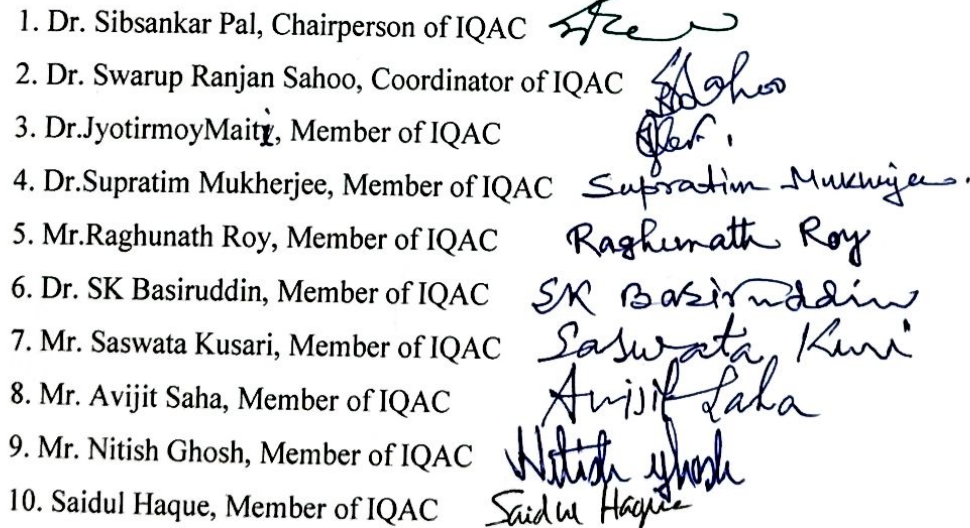 1. Dr. Sibsankar Pal, Chairperson of IQAC
2. Dr. Swarup Ranjan Sahoo, Coordinator of IQAC SRSahoo
3. Dr.JyotirmoyMaiti, Member of IQAC
4. Dr.Supratim Mukherjee, Member of IQAC Supratim Mukherjee.
5. Mr.Raghunath Roy, Member of IQAC Raghunath Roy
6. Dr. SK Basiruddin, Member of IQAC SK Basiruddin
7. Mr. Saswata Kusari, Member of IQAC Saswata
8. Mr. Avijit Saha, Member of IQAC Avijit Saha
9. Mr. Nitish Ghosh, Member of IQAC Nitish Ghosh
10. Saidul Haque, Member of IQAC Saidul Haque